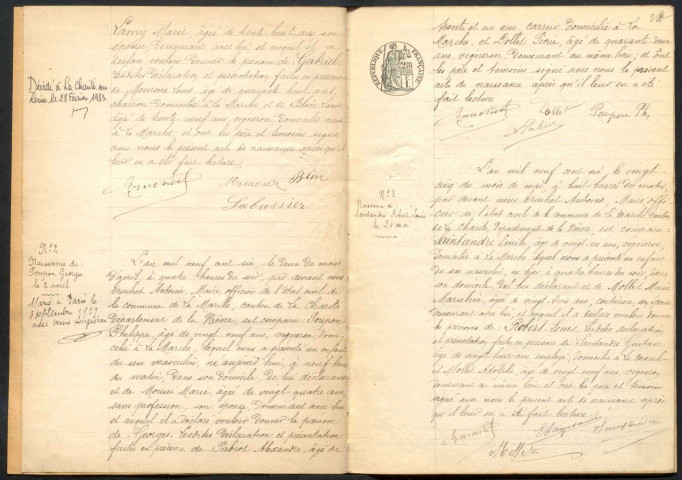 Lamy Marie, âgée de trente huit ans son
épouse demeurant avec lui et auquel il a
déclaré vouloir donner le prénom de Gabriel.
Lesdites déclaration et présentation faites en présence
Louis, âgé de quarante huit ans,
domicilié à La Marche et de Blin Louis
âgé de trente neuf ans, vigneron domicilié
à La Marche, et ont les père et témoins signé
avec nous le présent acte de naissance après qu'il
leur en a été fait lecture.
Blin
Labussier
Décédé à La Charité sur
Loire le 28 Février 1983
N° 2
Naissance de
Poupon Georges
le 2 avril
Marié à Paris le
septembre 1927
avec
L'an mil neuf cent six, le deux du mois
d'avril, à quatre heures du soir, par devant nous
Antoine, Maire, officier de l'état civil de
la commune de La Marche, canton de La Charité
Département de la Nièvre, est comparu: Poupon
Philippe, âgé de vingt neuf ans, vigneron domi-
cilié à La Marche, lequel nous a présenté un enfant
du sexe masculin, né aujourd'hui, à neuf heures
du matin, dans son domicile, de lui déclarant
et de Marie, âgée de vingt-quatre ans
sans profession, son épouse, demeurant avec lui
et auquel il a déclaré vouloir donner le prénom
de Georges. Lesdites déclaration et présentation
faites en présence de Sabiot Alexandre, âgé de
RÉPUBLIQUE FRANÇAISE
trente et un ans, carrier, domicilié à La
Marche, et Pierre, âgé de quarante deux
ans, vigneron, demeurant au même lieu; et ont
les père et témoins signé avec nous le présent
acte de naissance après qu'il leur en a été
fait lecture
Poupon Ph.
N° 3
Naissance de
Saintandré Robert Louis
le 24 mai
L'an mil neuf cent six, le vingt-
cinq du mois de mai, à huit heures du matin,
par devant nous Antoine, Maire, offi-
cier de l'état civil de la commune de La Marche, canton
de La Charité, Département de la Nièvre, est comparu:
Saintandré Emile, âgé de vingt ans, vigneron,
domicilié à La Marche, lequel nous a présenté un enfant
du sexe masculin, né hier à quatre heures du soir, dans
son domicile, de lui déclarant et de Mollet Marie
âgée de vingt trois ans, couturière, son épouse
demeurant avec lui, et auquel il a déclaré vouloir donner
les prénoms de: Robert Louis. Lesdites déclaration
et présentation faites en présence de Saintandré Gustave
âgé de vingt huit ans employé, domicilié à La Marche
et Mollet Adolphe, âgé de vingt neuf ans, vigneron,
demeurant au même lieu et ont les père et témoins
signé avec nous le présent acte de naissance après
qu'il leur en a été fait lecture.
Mollet